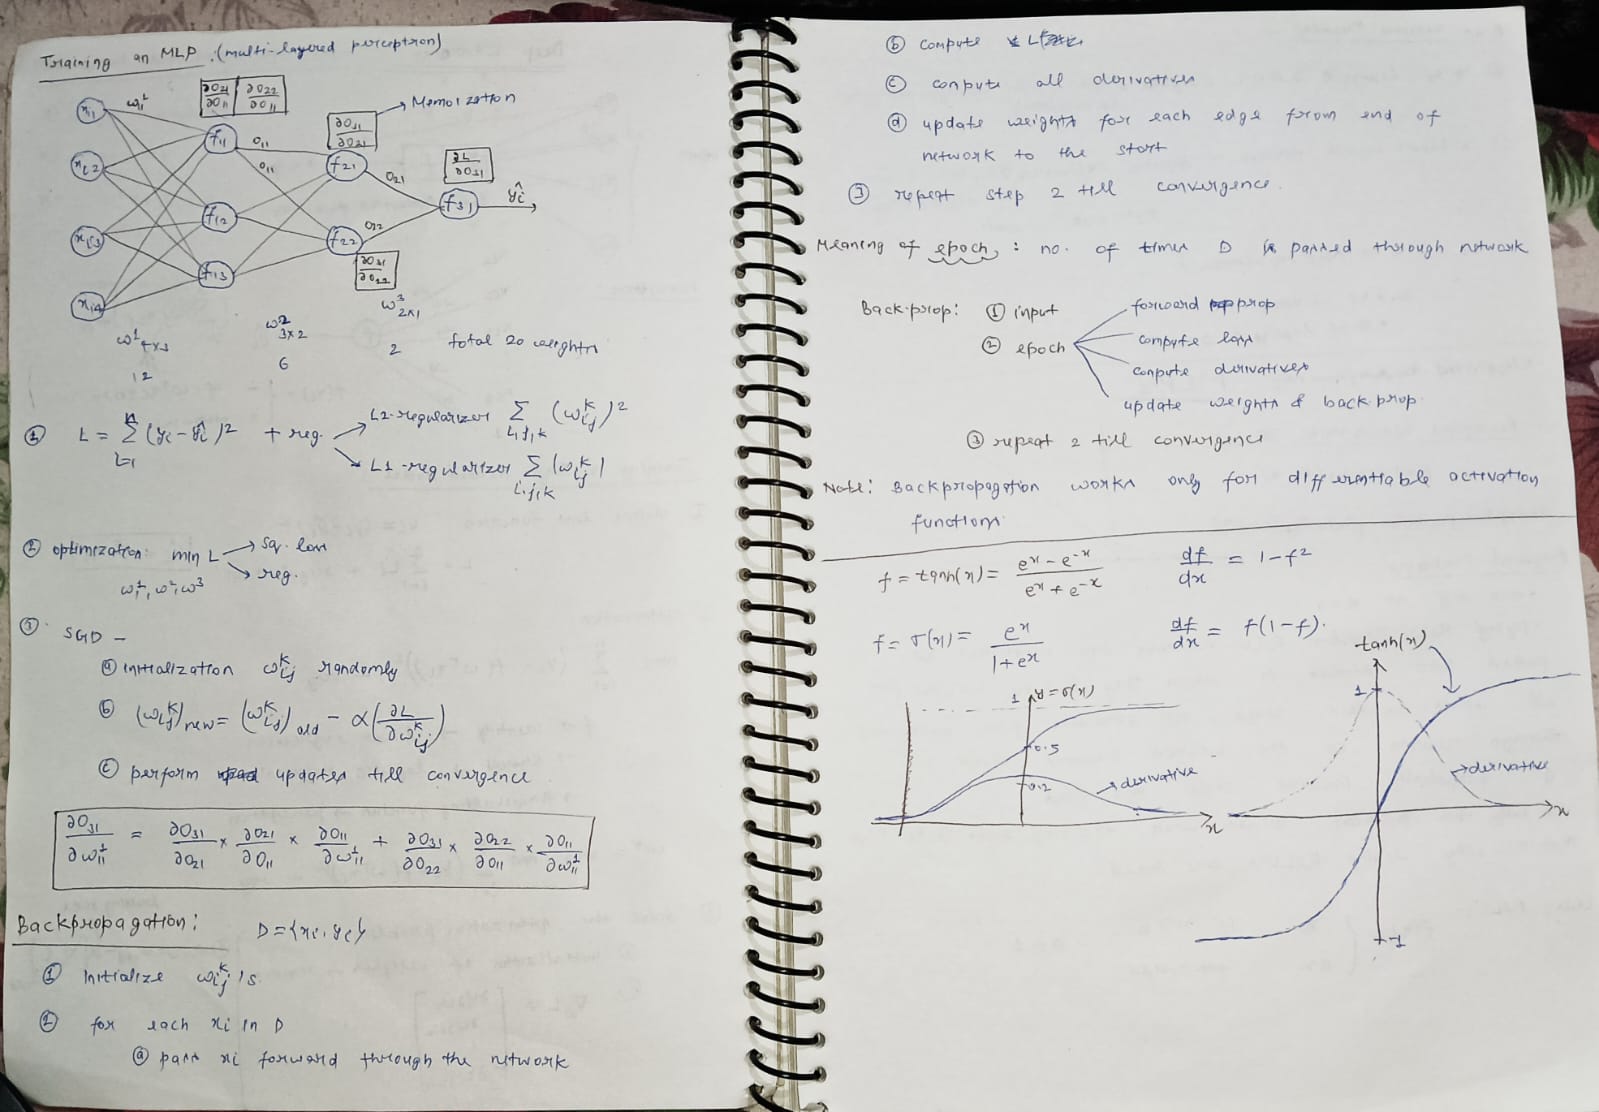 Training an MLP : (multi-layered perceptron)
x_i1 ω_11^1 ∂O21/∂O11 ∂O22/∂O11 → Memoization
∂O31/∂O21
f11 O11 O11 f21 O21 ∂L/∂O31
x_i2
f12 f31 ŷ_i
x_i3 f22 O22
f13 ∂O31/∂O22
x_i4
ω^1_4x3 ω^2_3x2 ω^3_2x1
12 6 2 total 20 weights
① L = Σ_{i=1}^n (y_i - ŷ_i)^2 + reg. → L2-regularizer Σ_{i,j,k} (ω_ij^k)^2
→ L1-regularizer Σ_{i,j,k} |ω_ij^k|
② optimization: min L → sq. loss
→ reg.
ω^1, ω^2, ω^3
③ SGD -
ⓐ initialization ω_ij^k randomly
ⓑ (ω_ij^k)new = (ω_ij^k)old - α(∂L/∂ω_ij^k)
ⓒ perform updates till convergence
∂O31/∂ω_11^1 = ∂O31/∂O21 × ∂O21/∂O11 × ∂O11/∂ω_11^1 + ∂O31/∂O22 × ∂O22/∂O11 × ∂O11/∂ω_11^1
Backpropagation: D = {x_i, y_i}
① Initialize ω_ij^k's
② for each x_i in D
ⓐ pass x_i forward through the network
ⓑ compute L
ⓒ compute all derivatives
ⓓ update weights for each edge from end of
network to the start
③ repeat step 2 till convergence.
Meaning of epoch : no. of times D is passed through network
Back-prop: ① input
② epoch
forward prop
compute loss
compute derivatives
update weights & backprop
③ repeat 2 till convergence
Note: Backpropagation works only for differentiable activation
functions
f = tanh(x) = (e^x - e^-x)/(e^x + e^-x) df/dx = 1-f^2
f = σ(x) = e^x/(1+e^x) df/dx = f(1-f).
1 y = σ(x)
0.5
0.2 → derivative
x
tanh(x)
1
→ derivative
x
-1